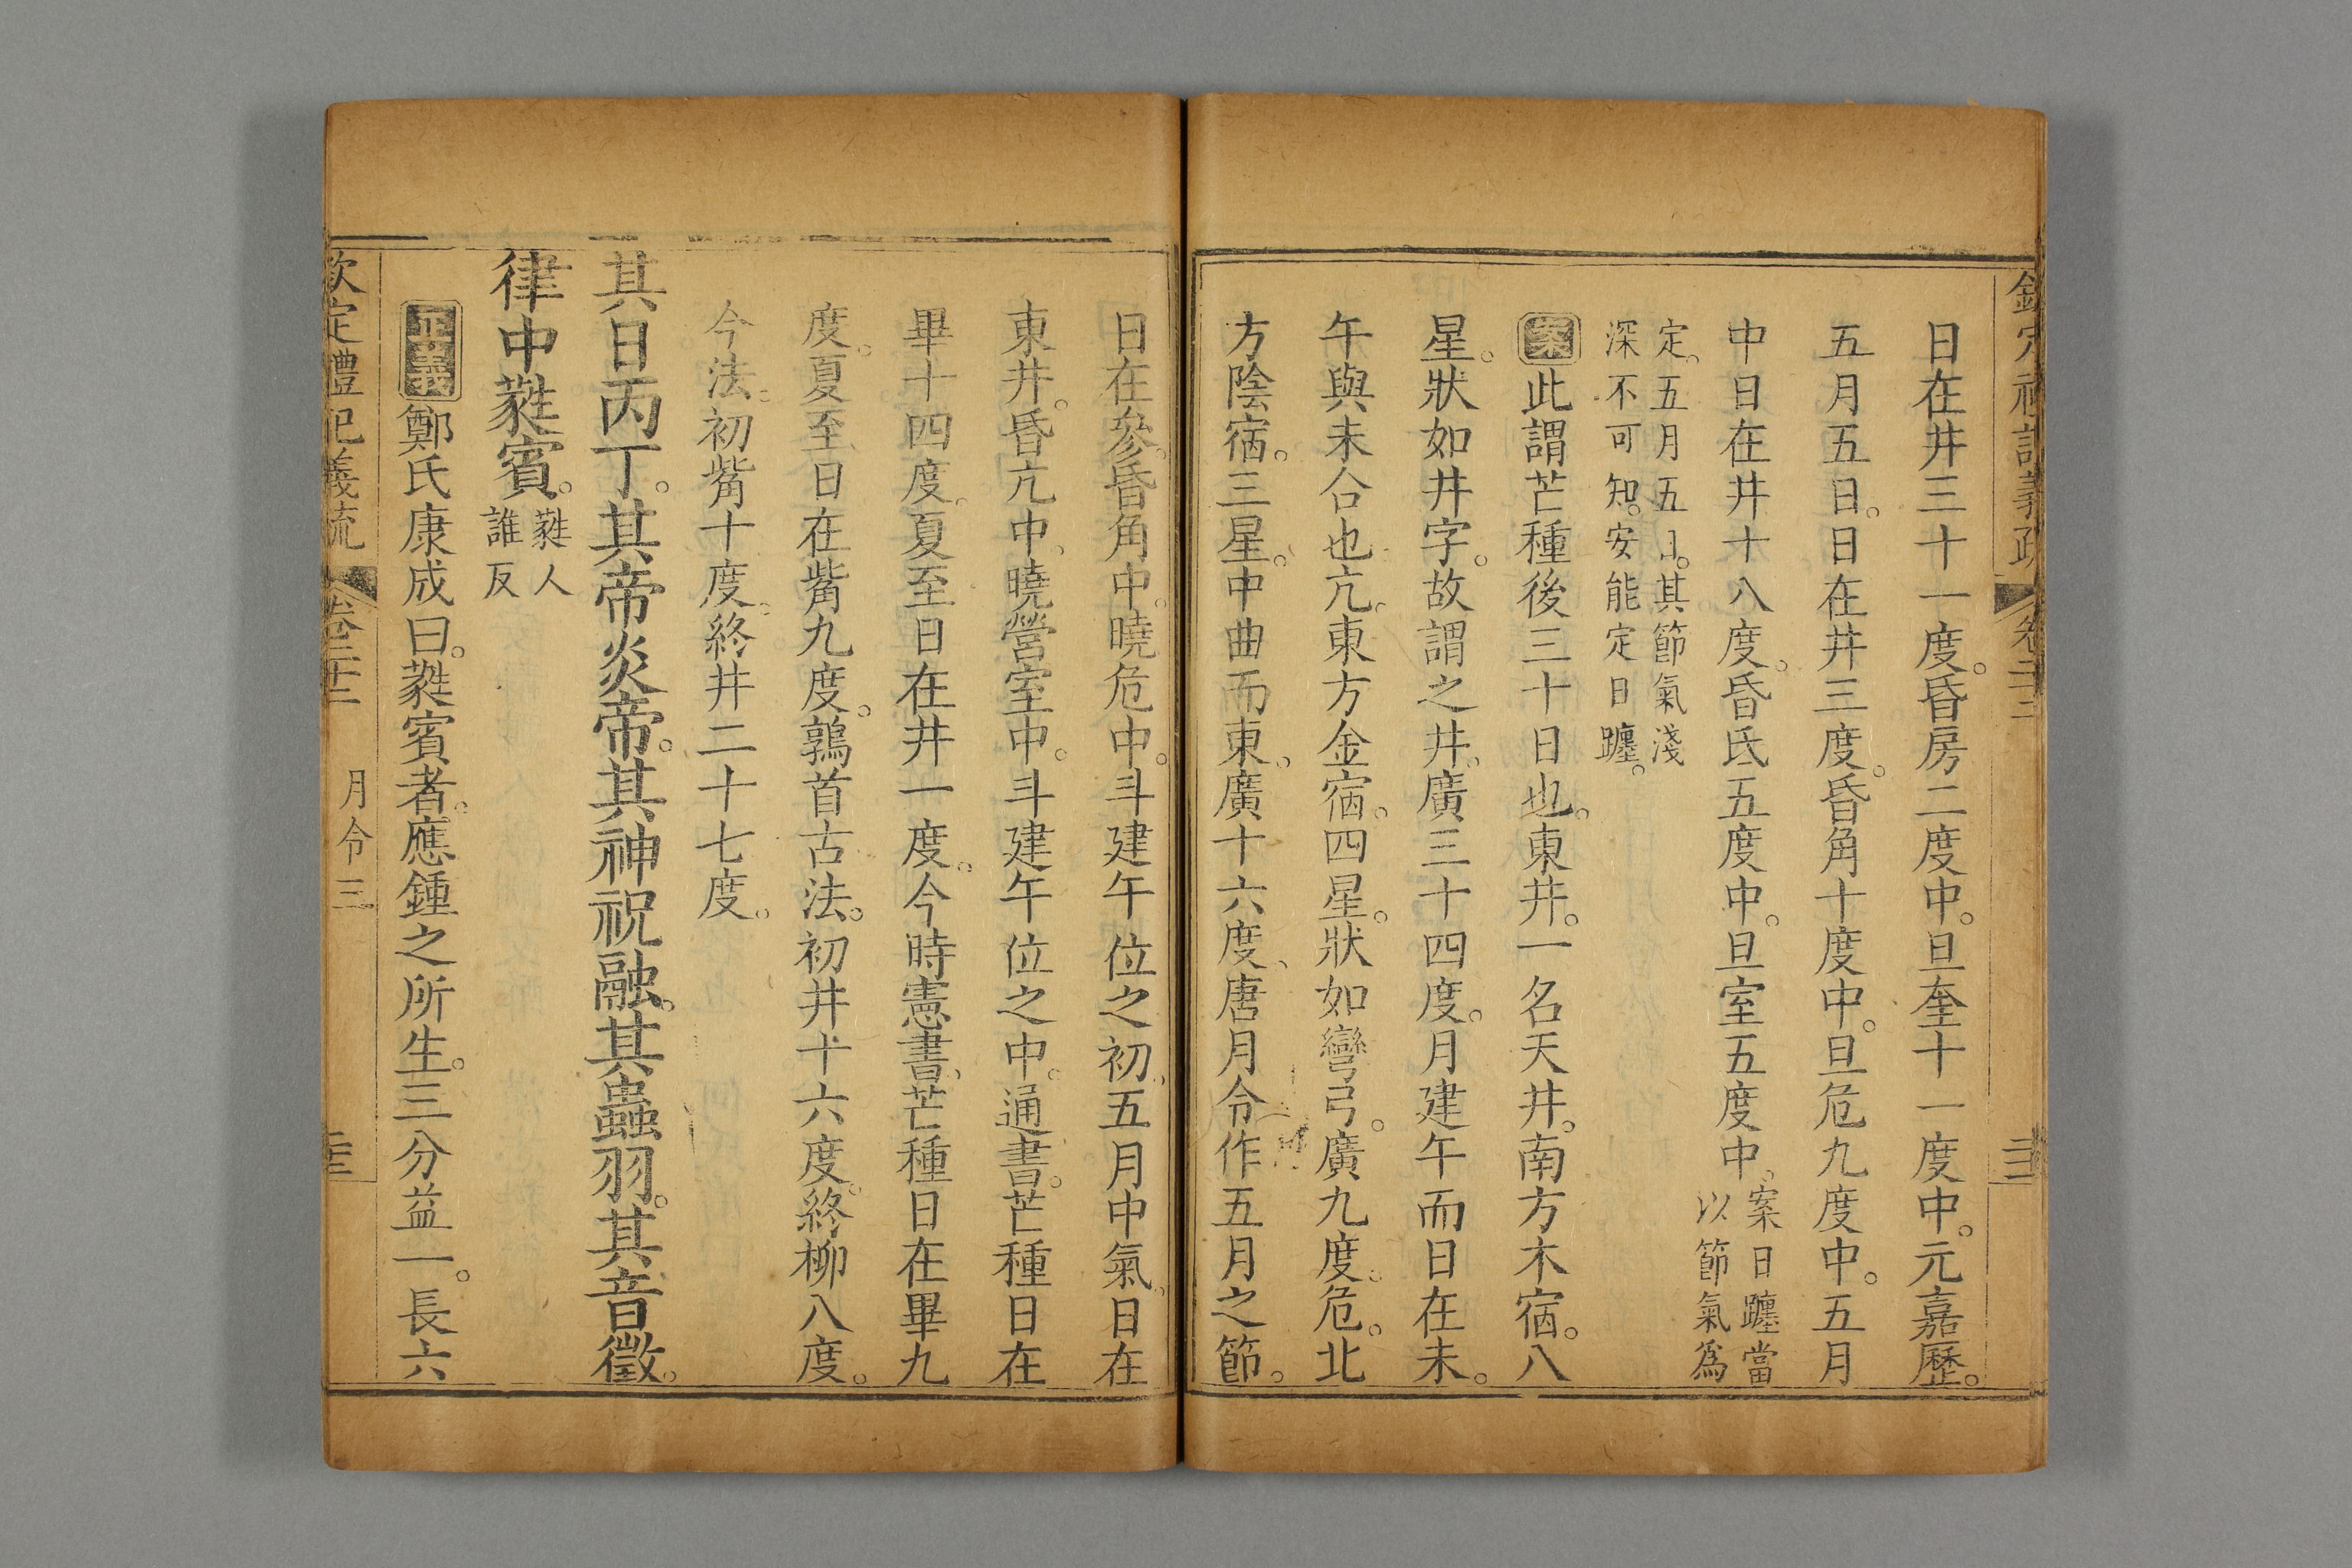 日在井三十一度。昏房二度中。旦奎十一度中。元嘉歷。
五月五日。日在井三度。昏角十度中。旦危九度中。五月
中日在井十八度。昏氐五度中。旦室五度中。案日躔當
以節氣爲
定。五月五日。其節氣淺
深不可知。安能定日躔。
案此謂芒種後三十日也。東井。一名天井。南方木宿。八
星。狀如井字。故謂之井。廣三十四度。月建午而日在未。
午與未合也。亢。東方金宿。四星。狀如彎弓。廣九度。危。北
方陰宿。三星。中曲而東。廣十六度、唐月令作五月之節。
日在參。昏角中。曉危中。斗建午位之初、五月中氣。日在
東井。昏亢中、曉營室中。斗建午位之中。通書。芒種日在
畢十四度。夏至日在井一度。今時憲書、芒種日在畢九
度。夏至日在觜九度。鶉首古法。初井十六度。終柳八度。
今法。初觜十度。終井二十七度。
其日丙丁。其帝炎帝。其神祝融。其蟲羽。其音徵。
律中蕤賓。蕤人
誰反
正義鄭氏康成曰。蕤賓者。應鍾之所生。三分益一。長六
欽定禮記義疏
卷二十二
月令三